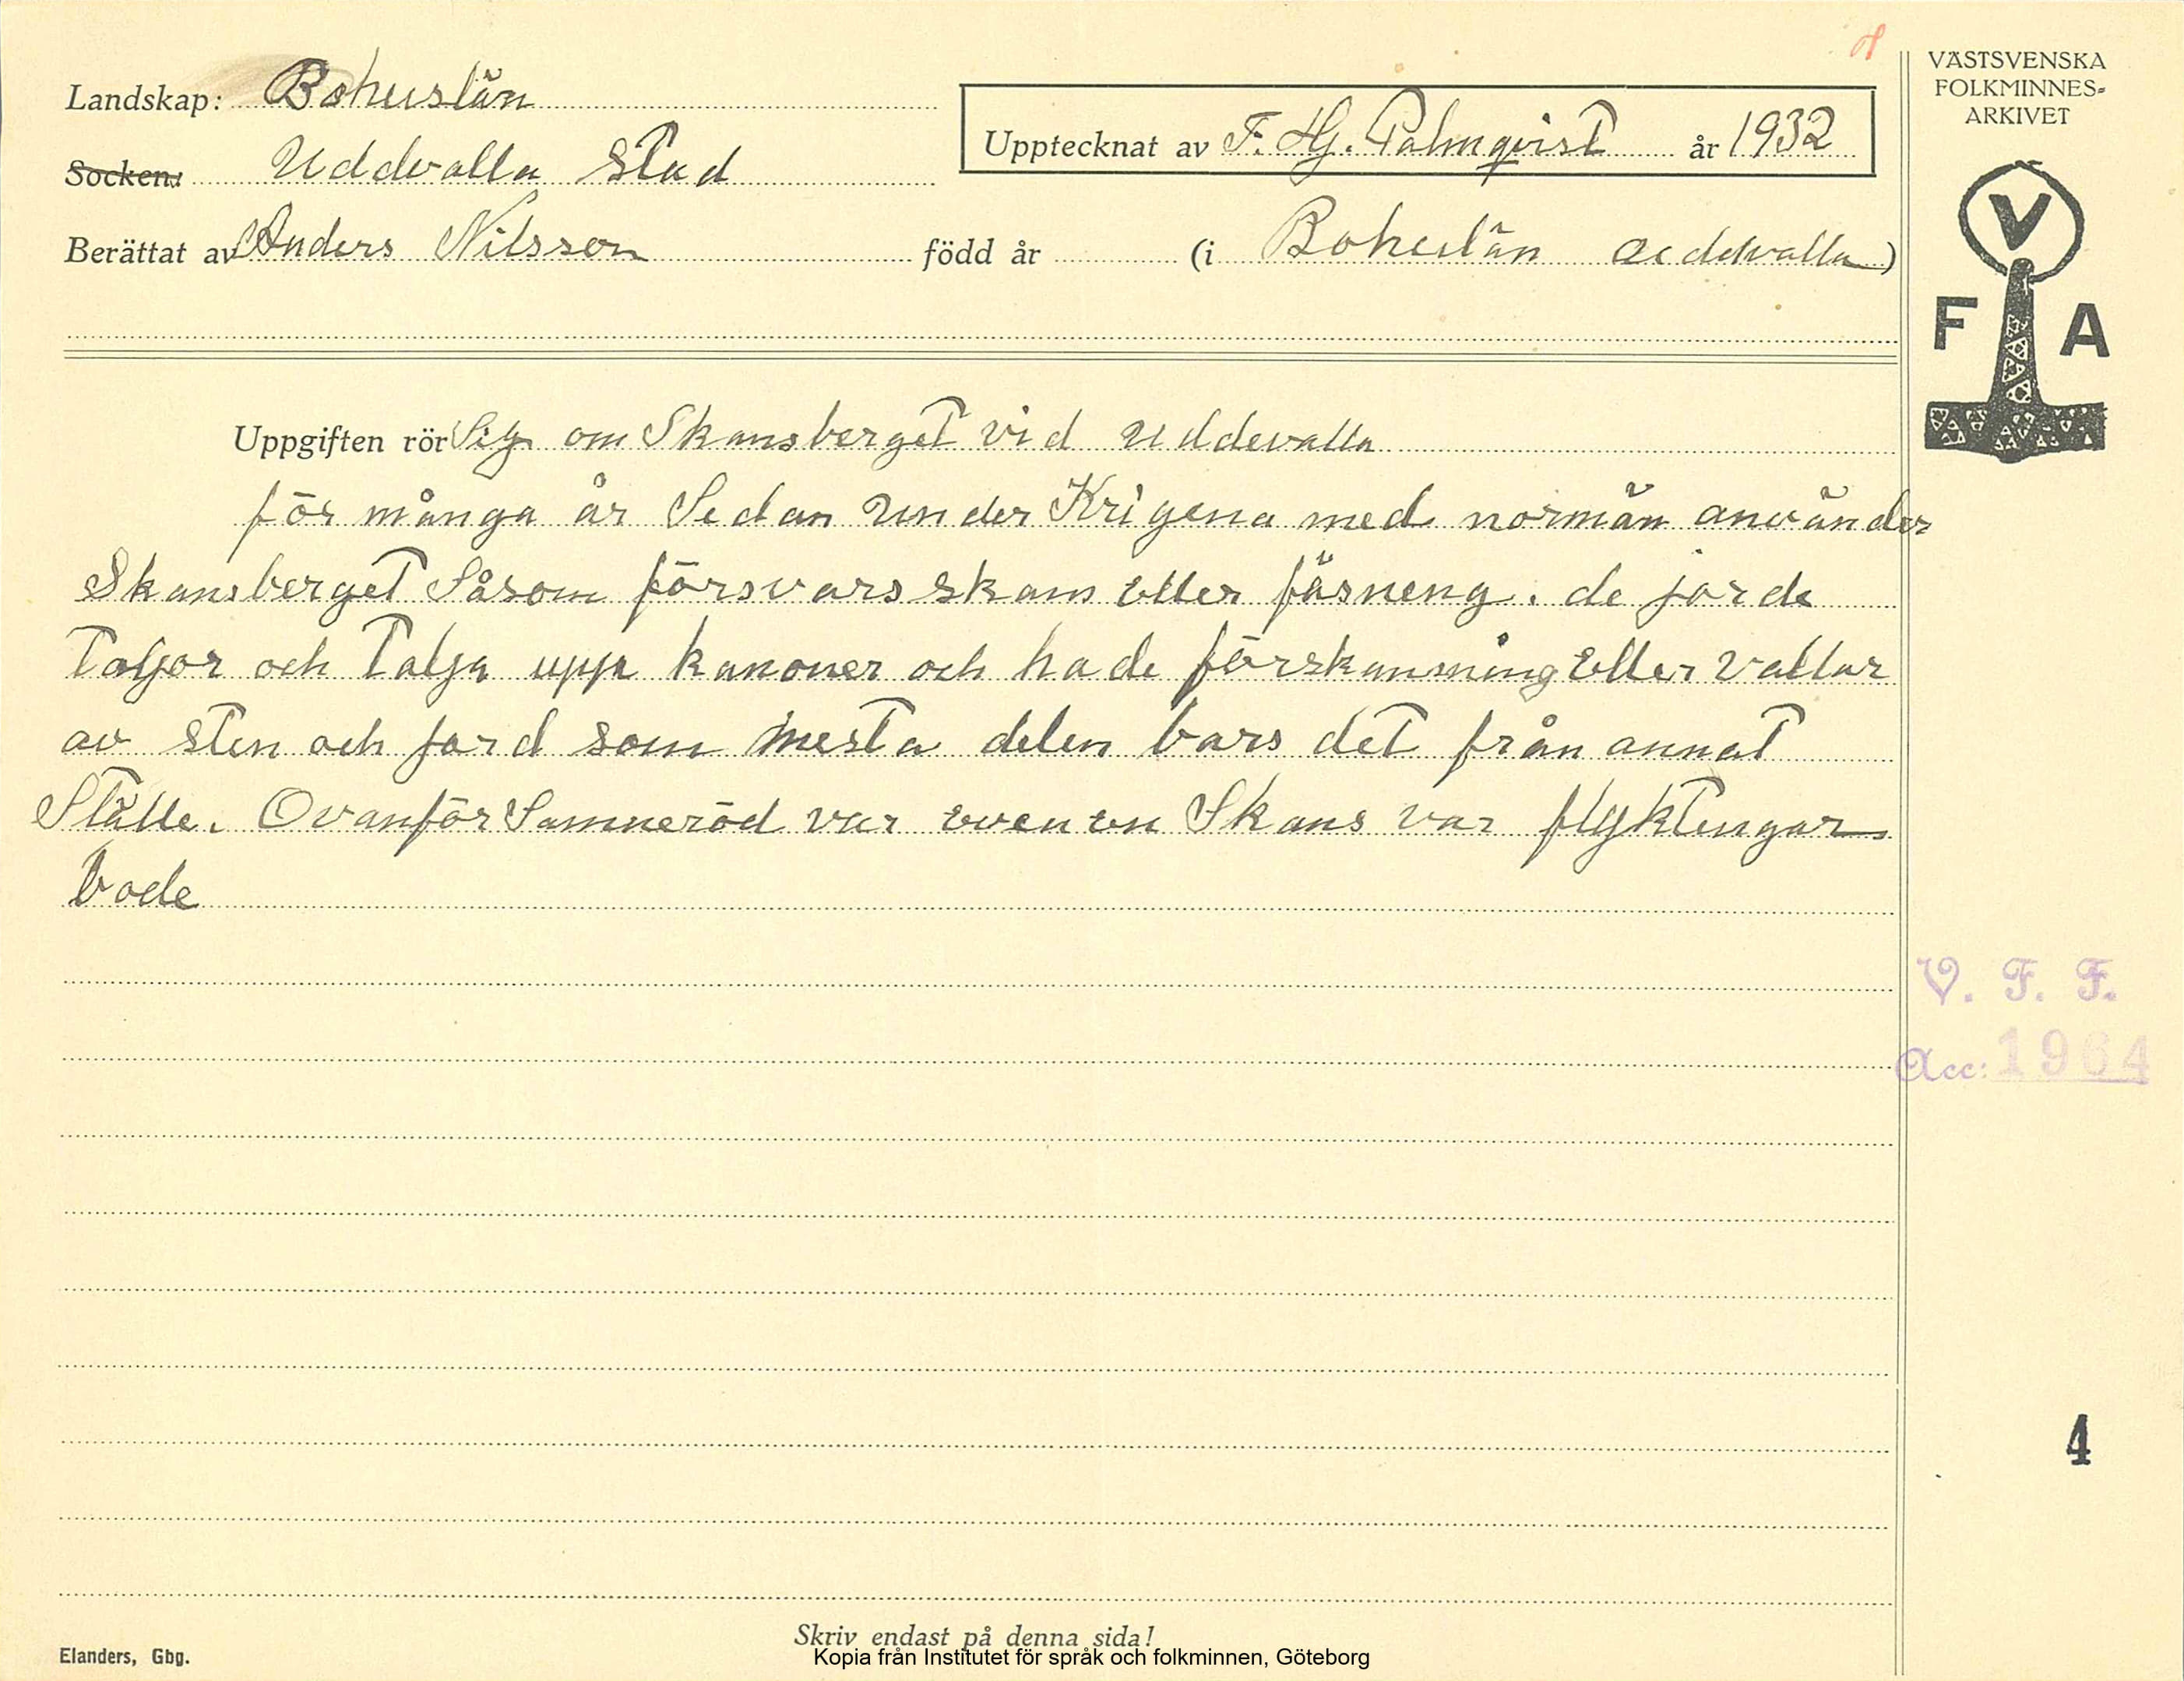 Landskap: Bohuslän
Socken: Uddevalla Stad
Upptecknat av F. Hj. Palmqvist år 1932
Berättat av Anders Nilsson född år (i Bohuslän Uddevalla)
VÄSTSVENSKA
FOLKMINNES-
ARKIVET
V
F A
Uppgiften rör Sig om Skansberget vid Uddevalla
för många år Sedan under Krigena med normän använder
Skansberget Såsom försvarsskans eller fäsneng. de jorde
Taljor och Talja upp kanoner och hade förskansning eller vallar
av sten och jord som mesta delen bars det från annat
Ställe. Ovanför Samneröd var even en Skans var flyktingar
bode
V. F. F.
Acc: 1964
4
Skriv endast på denna sida!
Kopia från Institutet för språk och folkminnen, Göteborg
Elanders, Gbg.